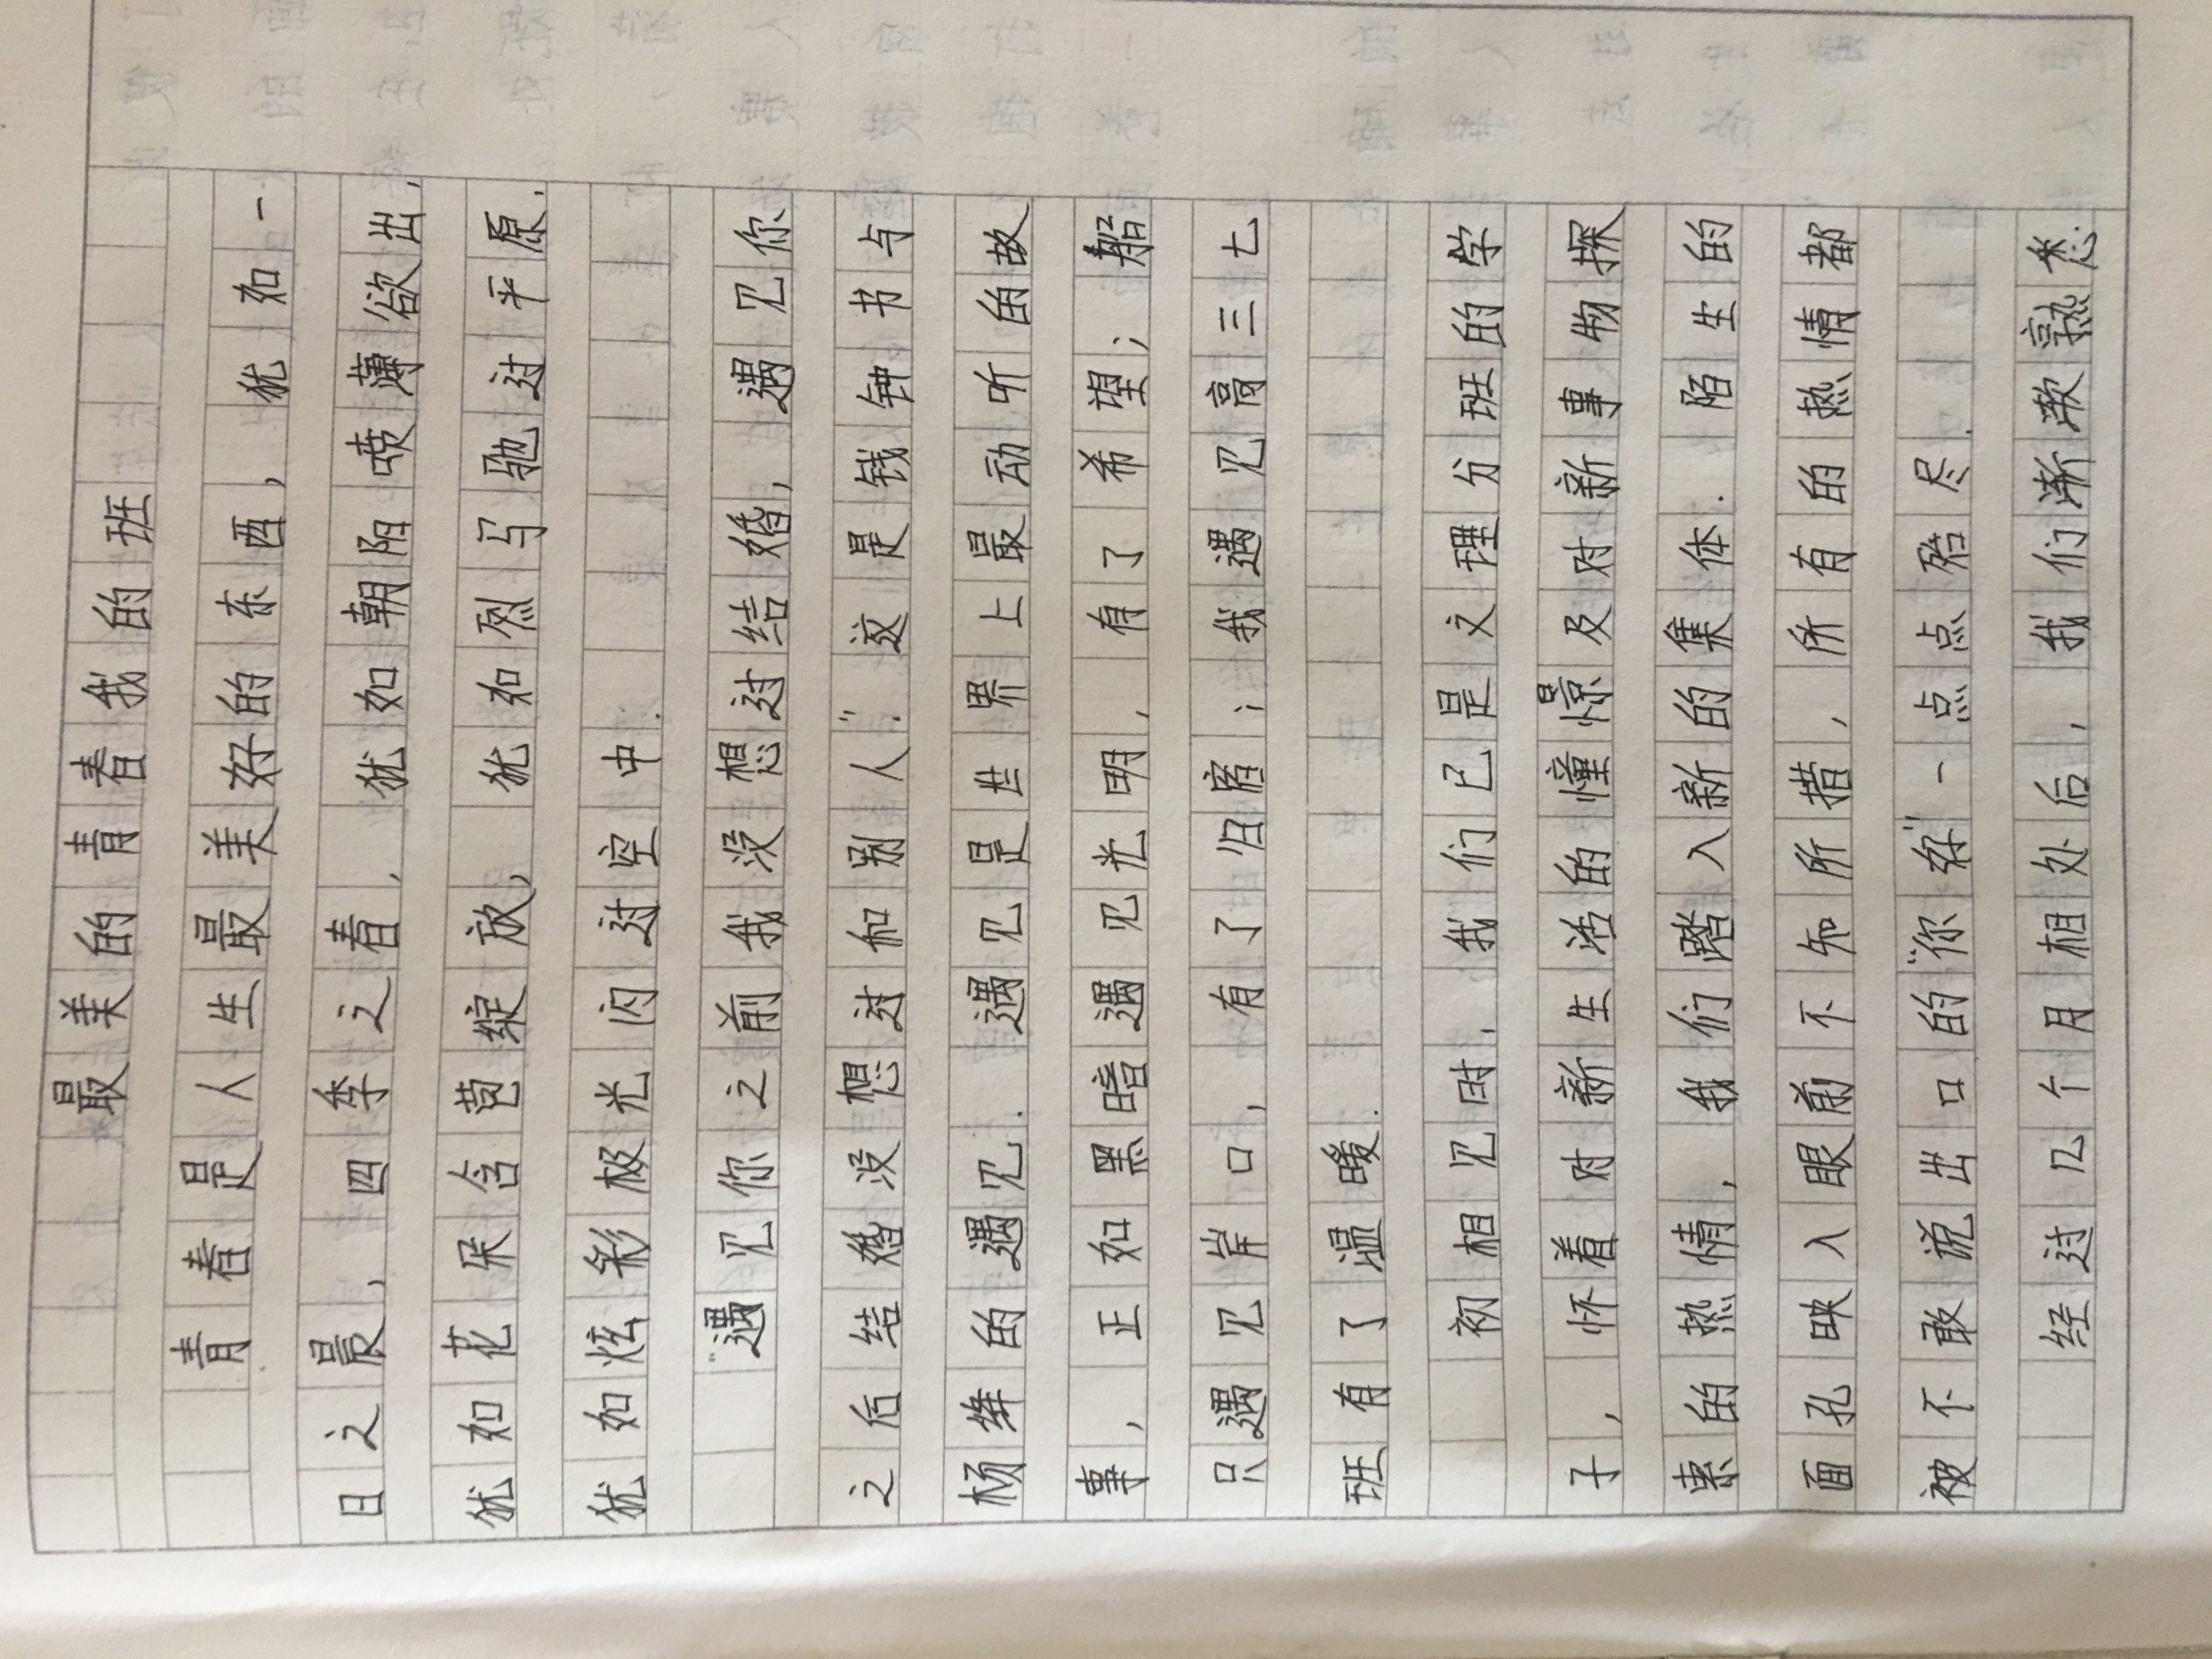 最美的青春我的班
青春是人生最美好的东西，犹如一
日之晨，四季之春，犹如朝阳喷薄欲出，
犹如花朵含苞绽放，犹如烈马驰过平原，
犹如炫彩极光闪过空中.
"遇见你之前我没想过结婚，遇见你
之后结婚没想过和别人."这是钱钟书与
杨绛的遇见.遇见是世界上最动听的故
事，正如黑暗遇见光明，有了希望；船
只遇见岸口，有了归宿；我遇见高三七
班有了温暖.
初相见时，我们已是文理分班的学
子，怀着对新生活的憧憬及对新事物探
索的热情，我们踏入新的集体.陌生的
面孔映入眼前不知所措，所有的热情都
被不敢说出口的"你好"一点点殆尽.
经过几个月相处后，我们渐渐熟悉.